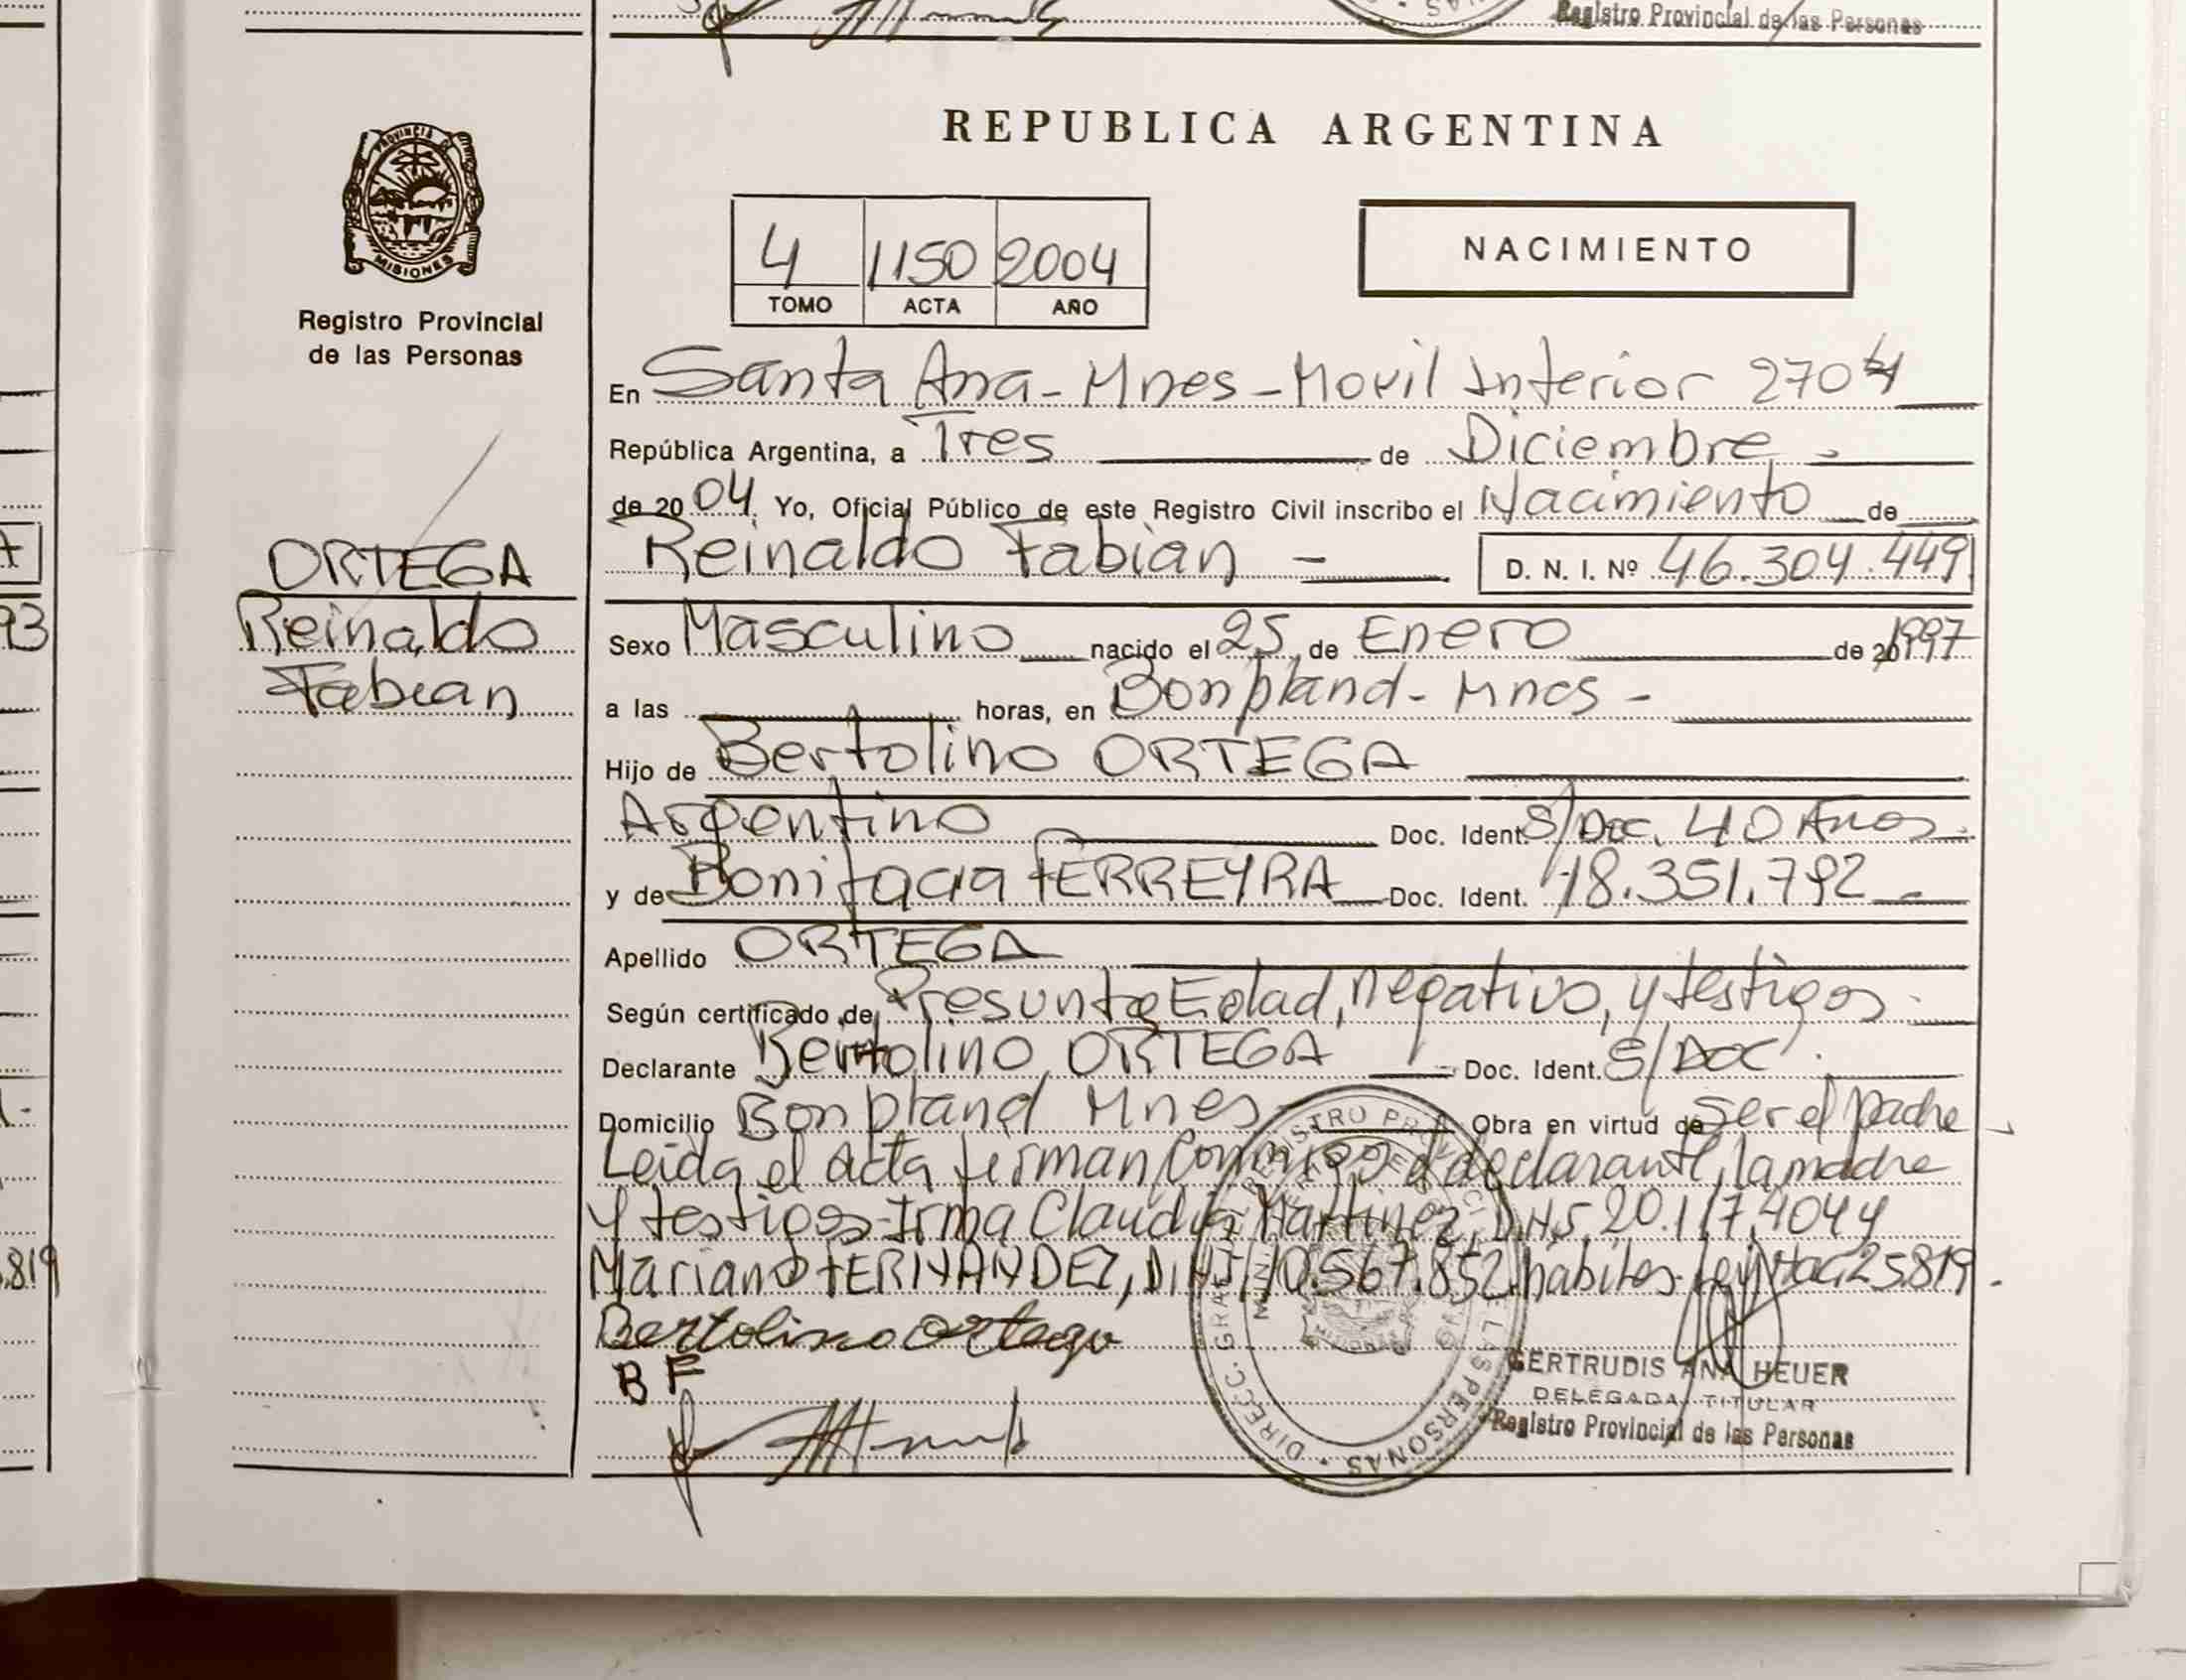 Registro Provincial de las Personas
REPUBLICA ARGENTINA
PROVINCIA
MISIONES
Registro Provincial
de las Personas
4 1150 2004
TOMO ACTA AÑO
NACIMIENTO
En Santa Ana - Mnes - Movil Interior 2704
República Argentina, a Tres de Diciembre -
de 2004 Yo, Oficial Público de este Registro Civil inscribo el Nacimiento de
Reinaldo Fabian - D. N. I. Nº 46.304.449
ORTEGA
Reinaldo
Fabian
Sexo Masculino nacido el 25 de Enero de 20 1997
a las horas, en Bonpland - Mnes -
Hijo de Bertolino ORTEGA
Argentino Doc. Ident. S/Doc. 40 Años.
y de Bonifacia FERREYRA Doc. Ident. 18.351.792
Apellido ORTEGA
Según certificado de Presunta Edad, negativo, y testigos
Declarante Bertolino ORTEGA Doc. Ident. S/DOC.
Domicilio Bonpland Mnes Obra en virtud de ser el padre
Leida el acta firman conmigo el declarante, la madre
y testigos - Irma Claudia Martinez, DNI, 20.117.404 y
Mariano FERNANDEZ, DNI, 10.567.852 habiles - 25819.
Bertolino Ortega
B F
GERTRUDIS ANA HEUER
DELEGADA TITULAR
Registro Provincial de las Personas
93
.819